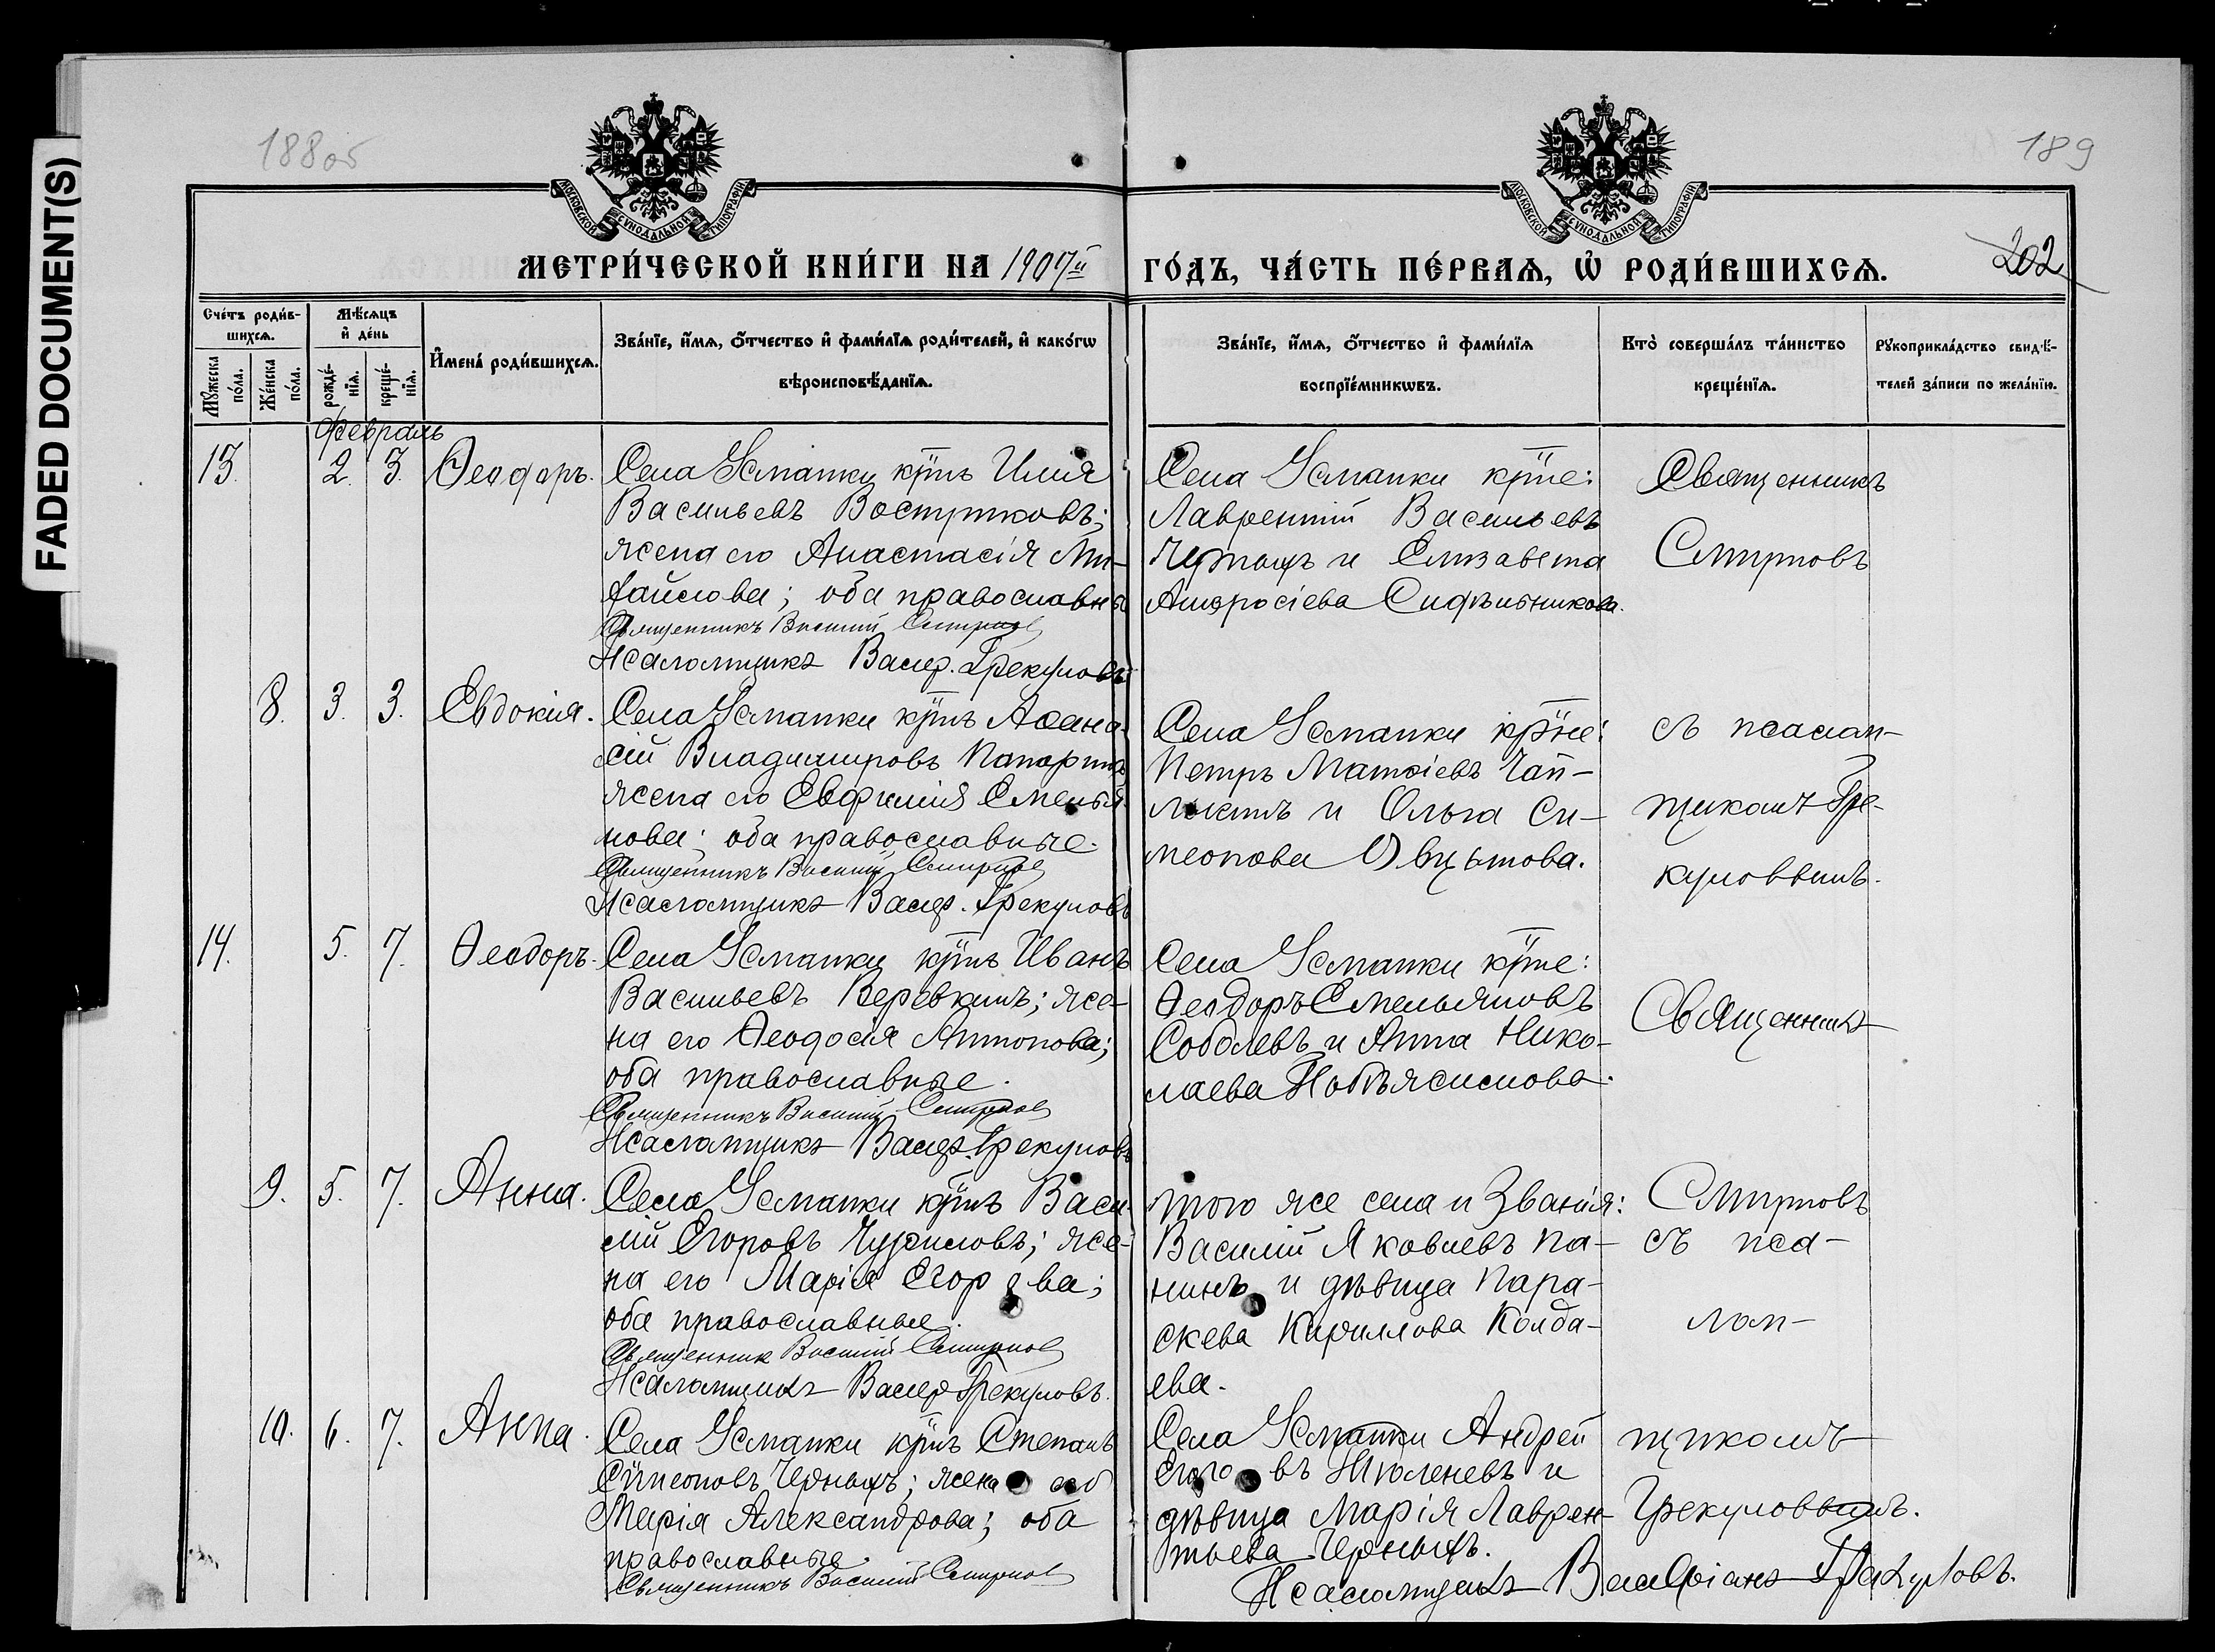 FADED DOCUMENT(S)
188об
189
202
МОСКОВСКОЙ СѴНОДАЛЬНОЙ ТИПОГРАФІИ
МОСКОВСКОЙ СѴНОДАЛЬНОЙ ТИПОГРАФІИ
МЕТРИ́ЧЕСКОЙ КНИ́ГИ НА 1907й
ГО́ДЪ, ЧА́СТЬ ПЕ́РВАѦ, Ѡ҆ РОДИ́ВШИХСѦ.
Сче́тъ роди́в-
шихсѧ.
Мꙋ́жеска по́ла.
Же́нска по́ла.
Мѣ́сѧцъ
и҆ де́нь
рожде́-нїѧ.
креще́-нїѧ.
И҆мена̀ роди́вшихсѧ.
Зва́нїе, и҆́мѧ, ѻ҆́тчество и҆ фами́лїѧ роди́телей, и҆ како́гѡ
вѣроисповѣ́данїѧ.
Зва́нїе, и҆́мѧ, ѻ҆́тчество и҆ фами́лїѧ
воспрїе́мникѡвъ.
Кто̀ соверша́лъ та́инство
креще́нїѧ.
Рꙋкоприкла́дство свидѣ́-
телей за́писи по жела́нїю.
Февраль
13. 2. 3. Ѳеодоръ.
Села Усманки кр͠нъ Илія
Васильевъ Востриковъ;
жена его Анастасія Ми-
хайлова; оба православны
Священникъ Василій Смирнов
Псаломщикъ Валер. Грекуловъ
Села Усманки кр͠не:
Лаврентій Васильевъ
Черныхъ и Елизавета
Амвросіева
Священникъ
Смирновъ
8. 3. 3. Евдокія.
Села Усманки кр͠нъ Аѳана-
сій Владимировъ
жена его Евфимія Емелья-
нова; оба православные.
Священникъ Василій Смирнов
Псаломщикъ Валер. Грекуловъ
Села Усманки кр͠не:
Петръ Матѳіевъ Чап-
лыгинъ и Ольга Си-
меонова
съ псалом-
щикомъ Гре-
куловымъ.
14. 5. 7. Ѳеодоръ.
Села Усманки кр͠нъ Иванъ
Васильевъ Веревкинъ; же-
на его Ѳеодосія Антонова;
оба православные.
Священникъ Василій Смирнов
Псаломщикъ Валер. Грекуловъ
Села Усманки кр͠не:
Ѳеодоръ Емельяновъ
Соболевъ и Анна Нико-
лаева
Священникъ
9. 5. 7. Анна.
Села Усманки кр͠нъ Васи-
лій Егоровъ Чуриловъ; же-
на его Марія Егорова;
оба православные.
Священник Василій Смирнов
Псаломщикъ Валер Грекуловъ.
того же села и званія:
Василій Яковлевъ Па-
нинъ и дѣвица Пара-
скева Кириллова Колба-
ева.
Смирновъ
съ пса-
лом-
10. 6. 7. Анна.
Села Усманки кр͠нъ Степанъ
Сімеоновъ Черныхъ; жена его
Марія Александрова; оба
православные.
Священникъ Василій Смирнов
Села Усманки Андрей
Егоровъ Тюленевъ и
дѣвица Марія Лаврен-
тьева Черныхъ.
щикомъ
Грекуловымъ.
Псаломщикъ Валеріанъ Грекуловъ.